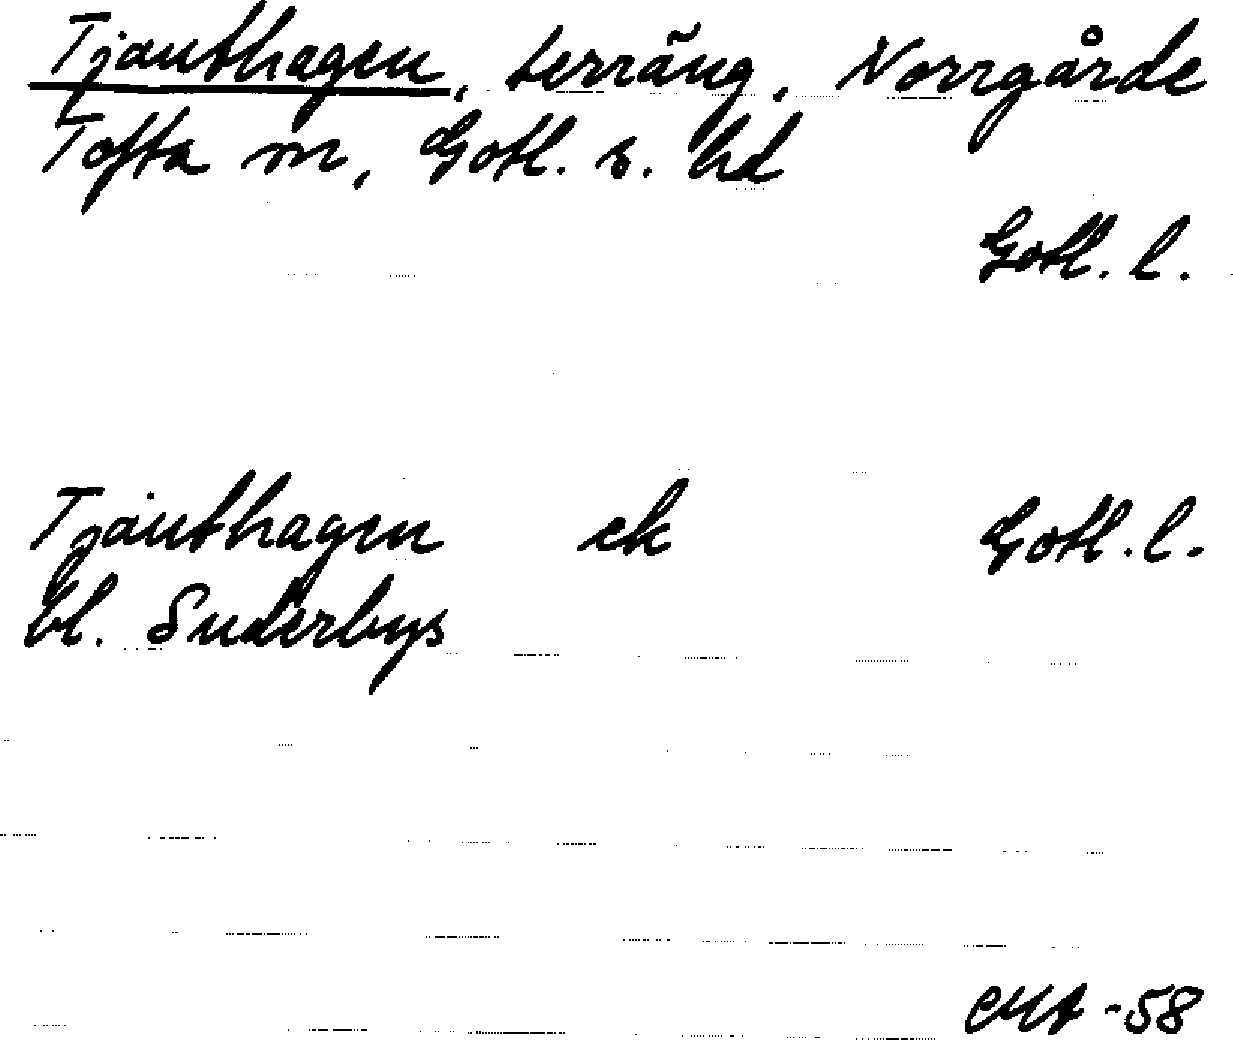 Tjauthagen, terräng, Norrgårde
Tofta sn, Gotl. s. hd
Gotl. l.
Tjauthagen ek Gotl. l.
bl. Suderbys
-58